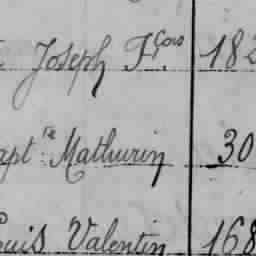 Joseph F.çois 182
apt.te Mathurin 30
Louis Valentin 168